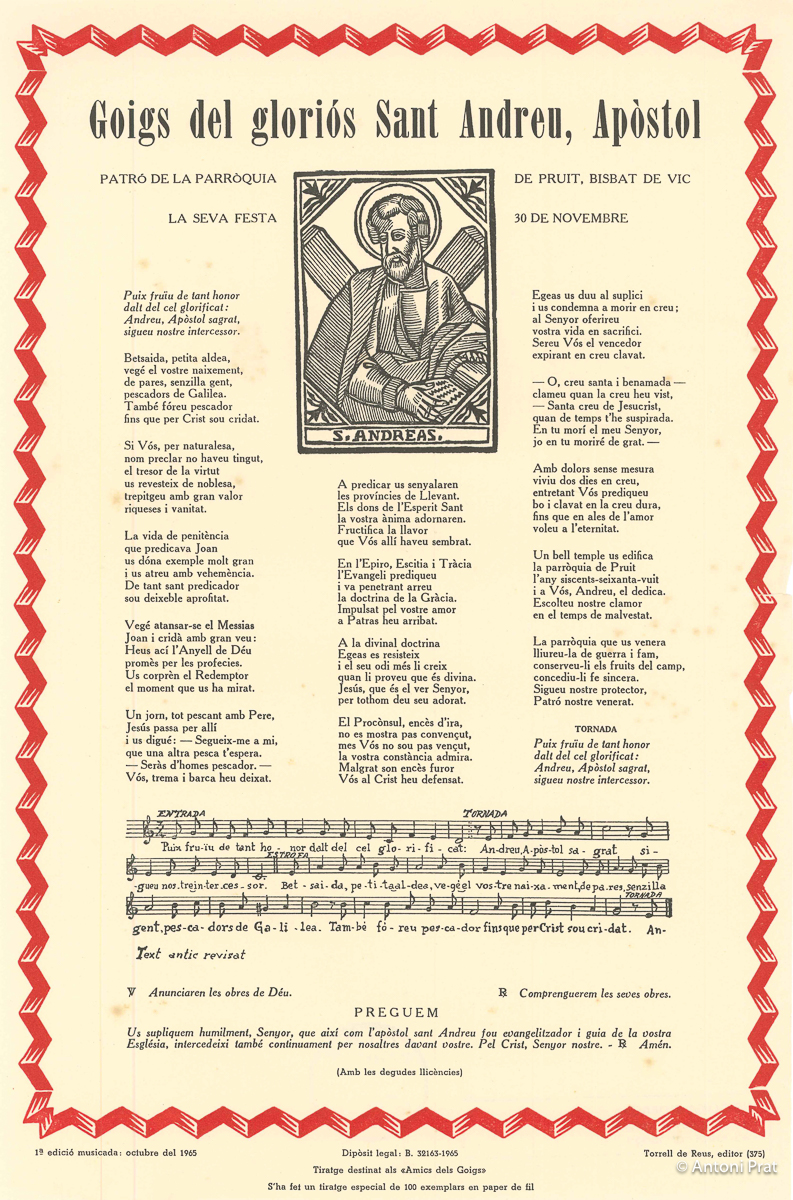 Goigs del gloriós Sant Andreu, Apòstol
PATRÓ DE LA PARRÒQUIA DE PRUIT, BISBAT DE VIC
LA SEVA FESTA 30 DE NOVEMBRE
S. ANDREAS.
Puix fruïu de tant honor
dalt del cel glorificat:
Andreu, Apòstol sagrat,
sigueu nostre intercessor.
Betsaida, petita aldea,
vegé el vostre naixement,
de pares, senzilla gent,
pescadors de Galilea.
També fóreu pescador
fins que per Crist sou cridat.
Si Vós, per naturalesa,
nom preclar no haveu tingut,
el tresor de la virtut
us revesteix de noblesa,
trepitgeu amb gran valor
riqueses i vanitat.
La vida de penitència
que predicava Joan
us dóna exemple molt gran
i us atreu amb vehemència.
De tant sant predicador
sou deixeble aprofitat.
Vegé atansar-se el Messias
Joan i cridà amb gran veu:
Heus ací l'Anyell de Déu
promès per les profecies.
Us corprèn el Redemptor
el moment que us ha mirat.
Un jorn, tot pescant amb Pere,
Jesús passa per allí
i us digué: — Segueix-me a mi,
que una altra pesca t'espera.
— Seràs d'homes pescador. —
Vós, trema i barca heu deixat.
A predicar us senyalaren
les províncies de Llevant.
Els dons de l'Esperit Sant
la vostra ànima adornaren.
Fructifica la llavor
que Vós allí haveu sembrat.
En l'Epiro, Escitia i Tràcia
l'Evangeli prediqueu
i va penetrant arreu
la doctrina de la Gràcia.
Impulsat pel vostre amor
a Patras heu arribat.
A la divinal doctrina
Egeas es resisteix
i el seu odi més li creix
quan li proveu que és divina.
Jesús, que és el ver Senyor,
per tothom deu ser adorat.
El Procònsul, encès d'ira,
no es mostra pas convençut,
mes Vós no sou pas vençut,
la vostra constància admira.
Malgrat son encès furor
Vós al Crist heu defensat.
Egeas us duu al suplici
i us condemna a morir en creu;
al Senyor oferireu
vostra vida en sacrifici.
Sereu Vós el vencedor
expirant en creu clavat.
— O, creu santa i benamada —
clameu quan la creu heu vist,
— Santa creu de Jesucrist,
quan de temps t'he suspirada.
En tu morí el meu Senyor,
jo en tu moriré de grat. —
Amb dolors sense mesura
viviu dos dies en creu,
entretant Vós prediqueu
bo i clavat en la creu dura,
fins que en ales de l'amor
voleu a l'eternitat.
Un bell temple us edifica
la parròquia de Pruit
l'any siscents-seixanta-vuit
i a Vós, Andreu, el dedica.
Escolteu nostre clamor
en el temps de malvestat.
La parròquia que us venera
lliureu-la de guerra i fam,
conserveu-li els fruits del camp,
concediu-li fe sincera.
Sigueu nostre protector,
Patró nostre venerat.
TORNADA
Puix fruïu de tant honor
dalt del cel glorificat:
Andreu, Apòstol sagrat,
sigueu nostre intercessor.
ENTRADA TORNADA
Puix fru-ïu de tant ho-nor dalt del cel glo-ri-fi-cat: An-dreu, A-pòs-tol sa-grat si-
ESTROFA
-gueu nos-tre in-ter-ces-sor. Bet-sai-da, pe-ti-ta al-dea, ve-gé el vos-tre nai-xa-ment, de pa-res, senzilla
TORNADA
gent, pes-ca-dors de Ga-li-lea. Tam-bé fó-reu pes-ca-dor fins que per Crist sou cri-dat. An-
Text antic revisat
℣ Anunciaren les obres de Déu. ℟ Comprenguerem les seves obres.
PREGUEM
Us supliquem humilment, Senyor, que així com l'apòstol sant Andreu fou evangelitzador i guia de la vostra
Església, intercedeixi també contínuament per nosaltres davant vostre. Pel Crist, Senyor nostre. - ℟ Amén.
(Amb les degudes llicències)
1ª edició musicada: octubre del 1965 Dipòsit legal: B. 32163-1965 Torrell de Reus, editor (375)
Tiratge destinat als «Amics dels Goigs»
S'ha fet un tiratge especial de 100 exemplars en paper de fil
© Antoni Prat